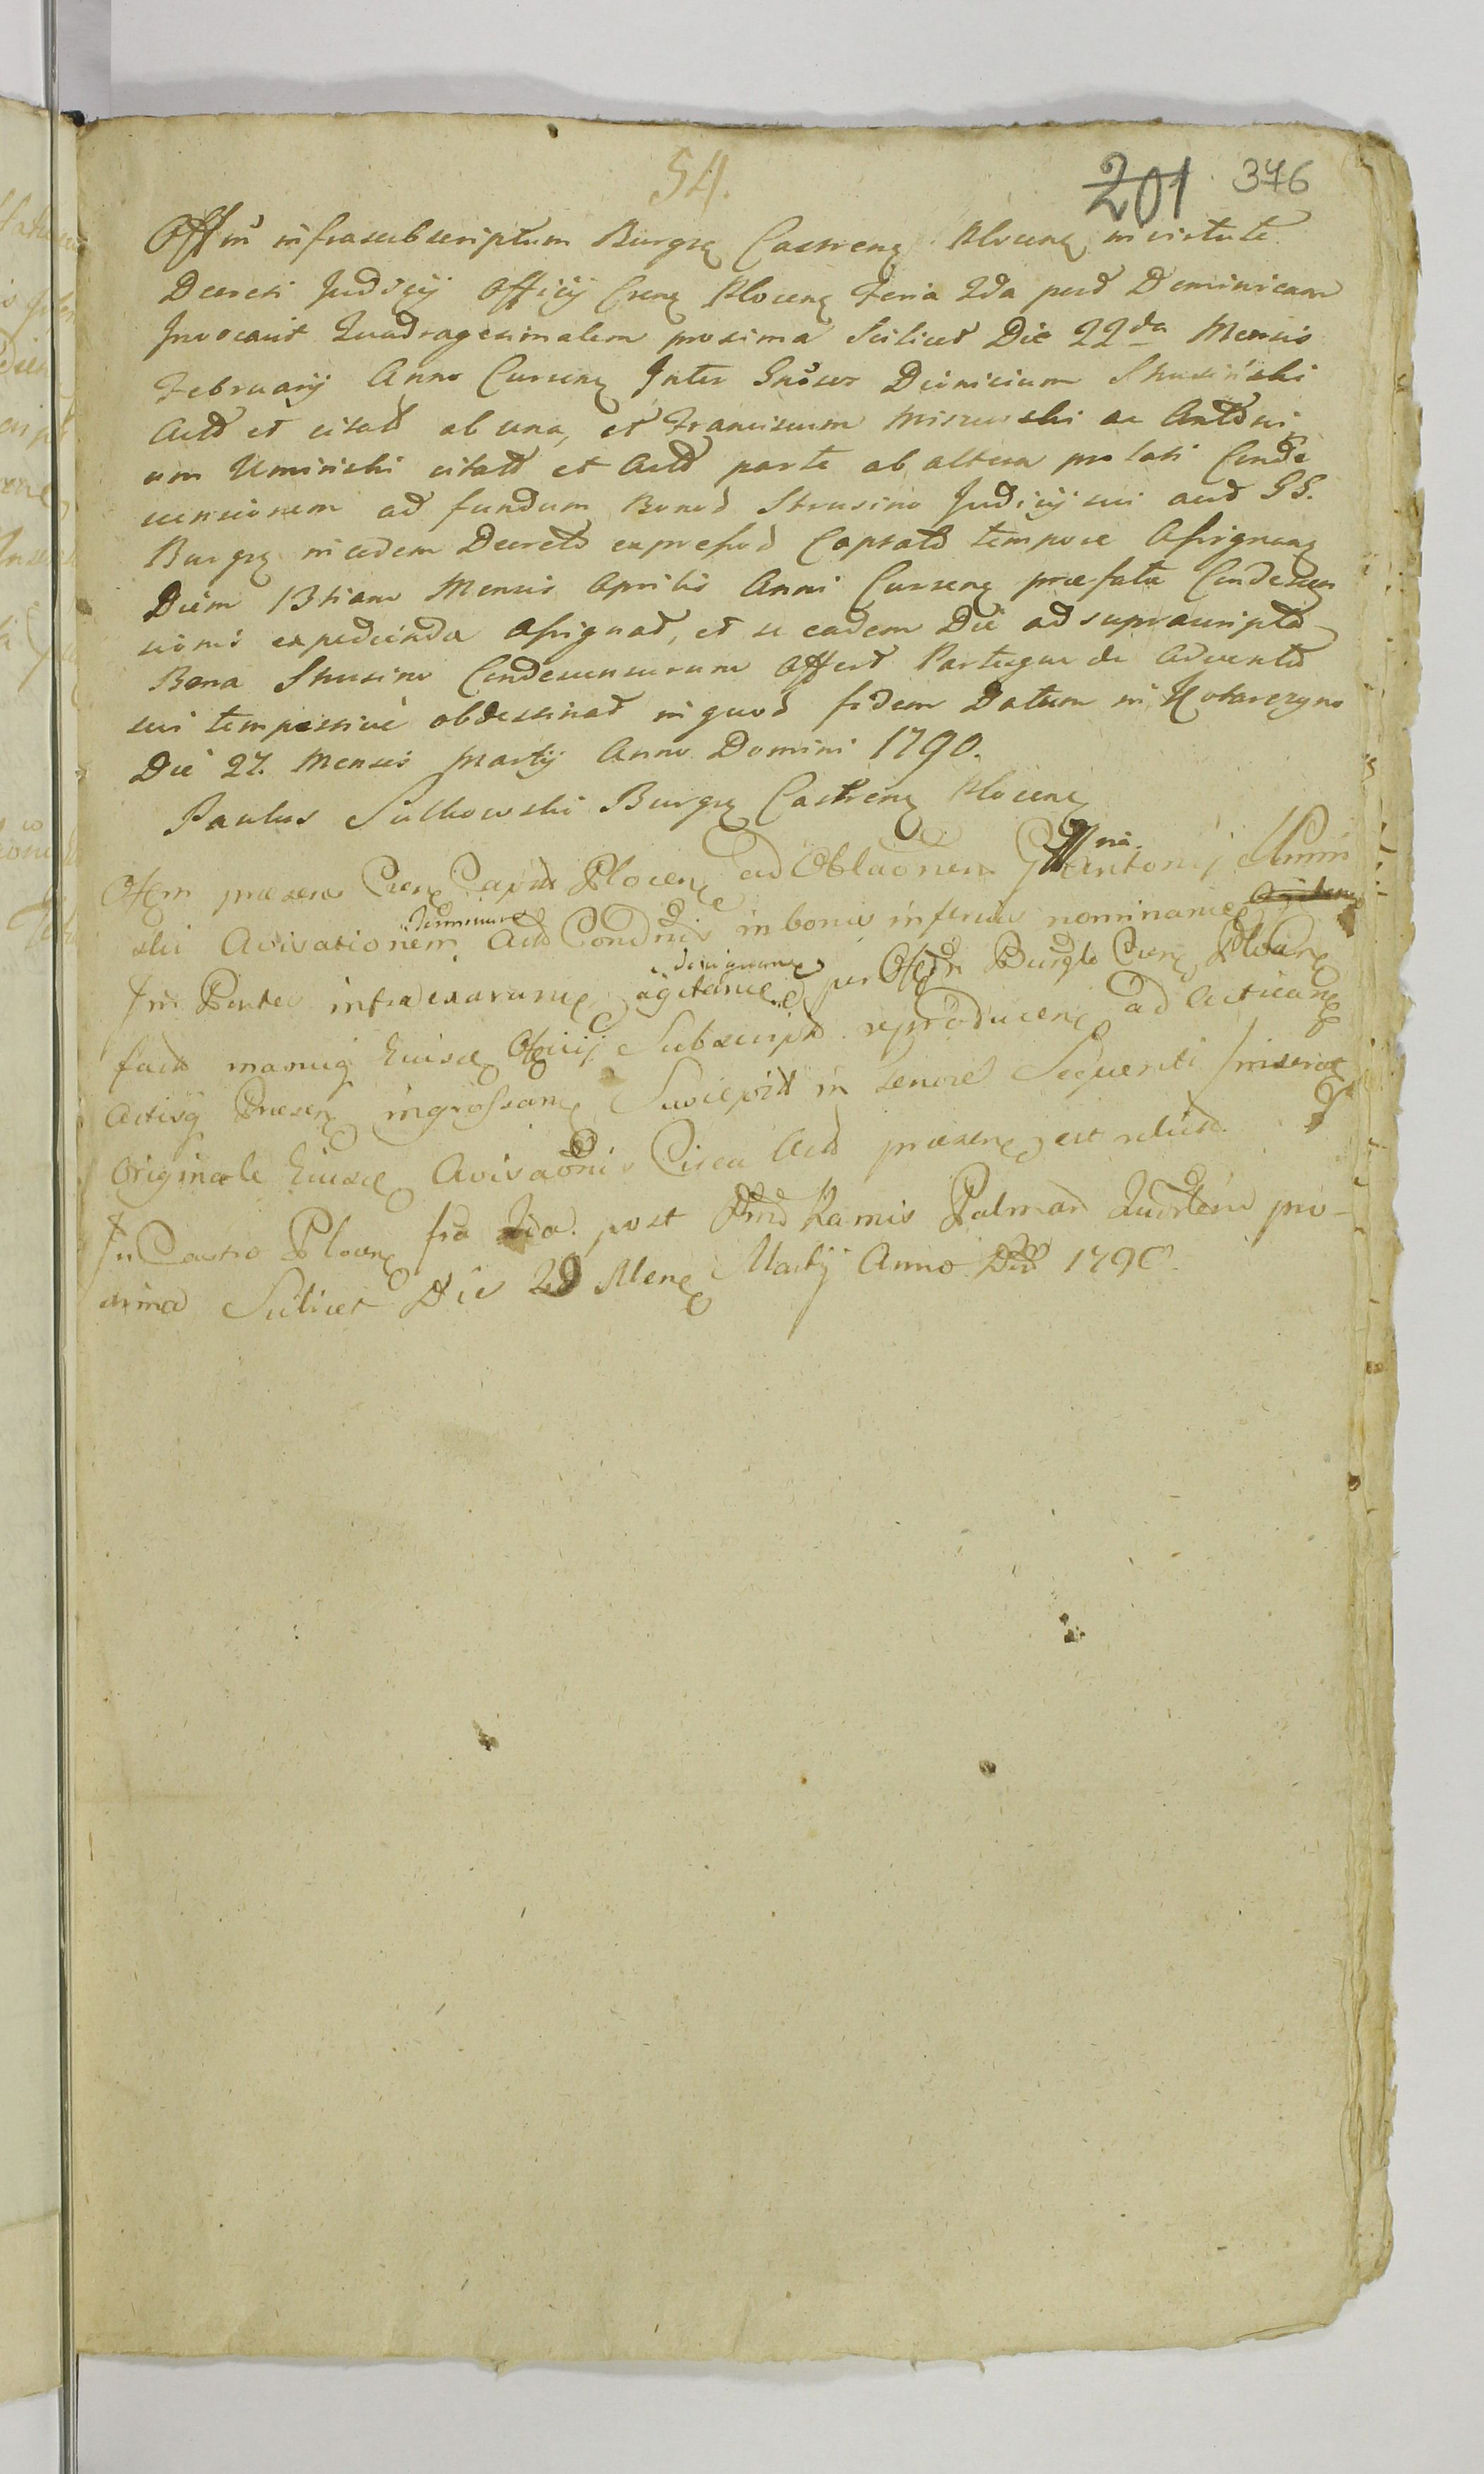 54.
201 376
Offm infrascubscriptum Burgrę Castrenę Plocenę in virtute
Decreti Judicij Officij Crenę Plocenę Feria 2da post Dominicam
Invocavit Quadragesimalem proxima Scilicet Die 22da Mensis
Februarij Anno Currenę Inter Gnosos Dionisium Strusiński
Actd et citatd ab una, et Franciscum Miszewski ac Antoni
um Umiński citatd et Actd parte ab altera prolati Conde
scensionem ad fundum Bonod Strusino Judicij sui aud GG.
Burgrę in eodem Decretd expressod Captatd tempore Assignanę
Diem 13tiam Mensis Aprilis Anni Currenę praefata Condescen
sionis expedienda Assignat, et se eadem Die ad suprascriptd
Bona Strusino Condescensurum Offert Partesque de Adventd
sui tempestive obdestinat in quod fidem Datum in Kotarczyno
Die 27. Mensis Martij Anno Domini 1790.
Paulus Sulkowski Burgrę Castrenę Plocenę
Offm praesens Crenę Capitt Plocenę ad Oblaonem G Antonij Umin
ski Avisationem Terminum Actd Condnis in bonis inferius nominanę
Inr Partes infra exaranę, designanę agitanę per Offm Burgle Crenę Plocenę
factd manuq Eiusdę Officij Subscriptd reproducenę ad Acticanę
Actisq Praesenę ingrossanę Suscepitt in tenore Sequenti /inserat
Originale Eiusdę Avisaonis Circa Actd praesenę est relictd
In Castro Plocenę fra 2da. post Dnicd Ramis Palmard Quadrlem pro-
xima Scilicet Die 29 Menę Martij Anno Dni 1790.